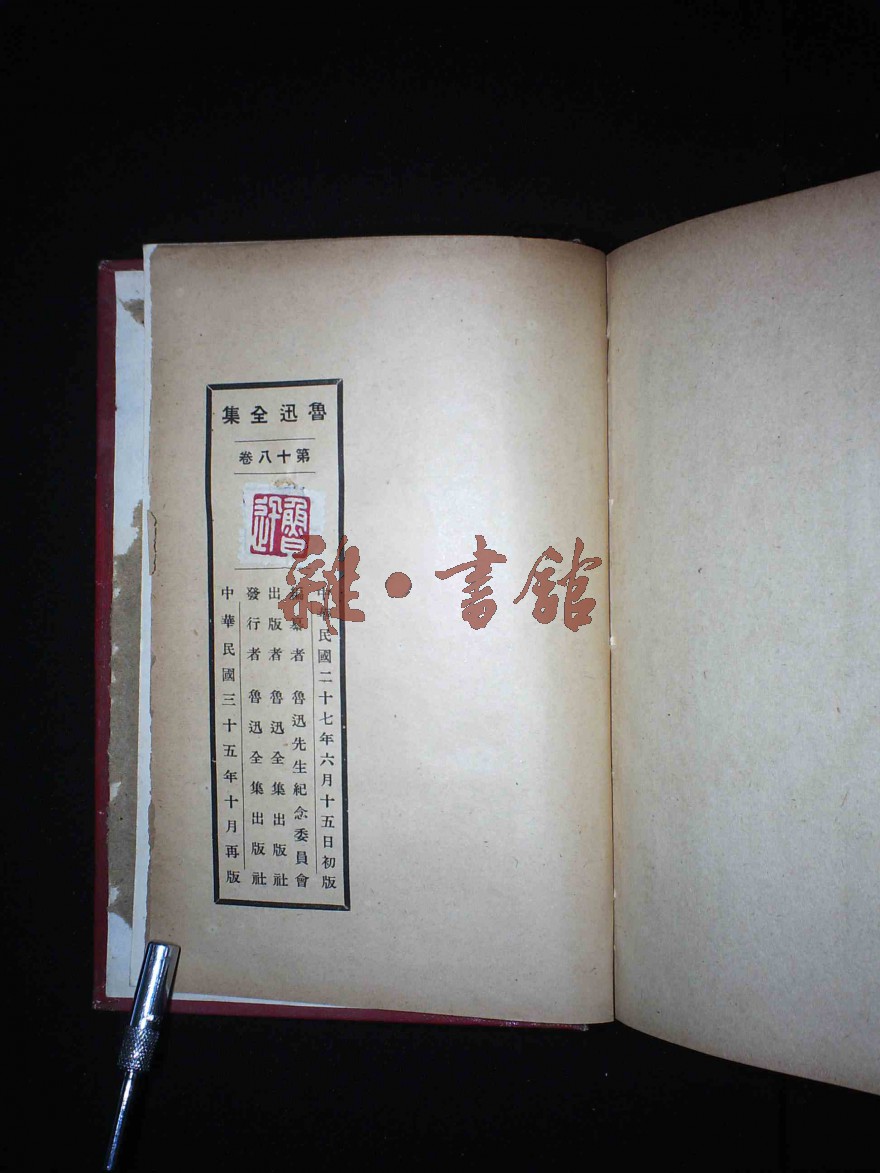 魯迅全集
第十八卷
魯迅
中華民國二十七年六月十五日初版
編纂者 魯迅先生紀念委員會
出版者 魯迅全集出版社
發行者 魯迅全集出版社
中華民國三十五年十月再版
雜·書館